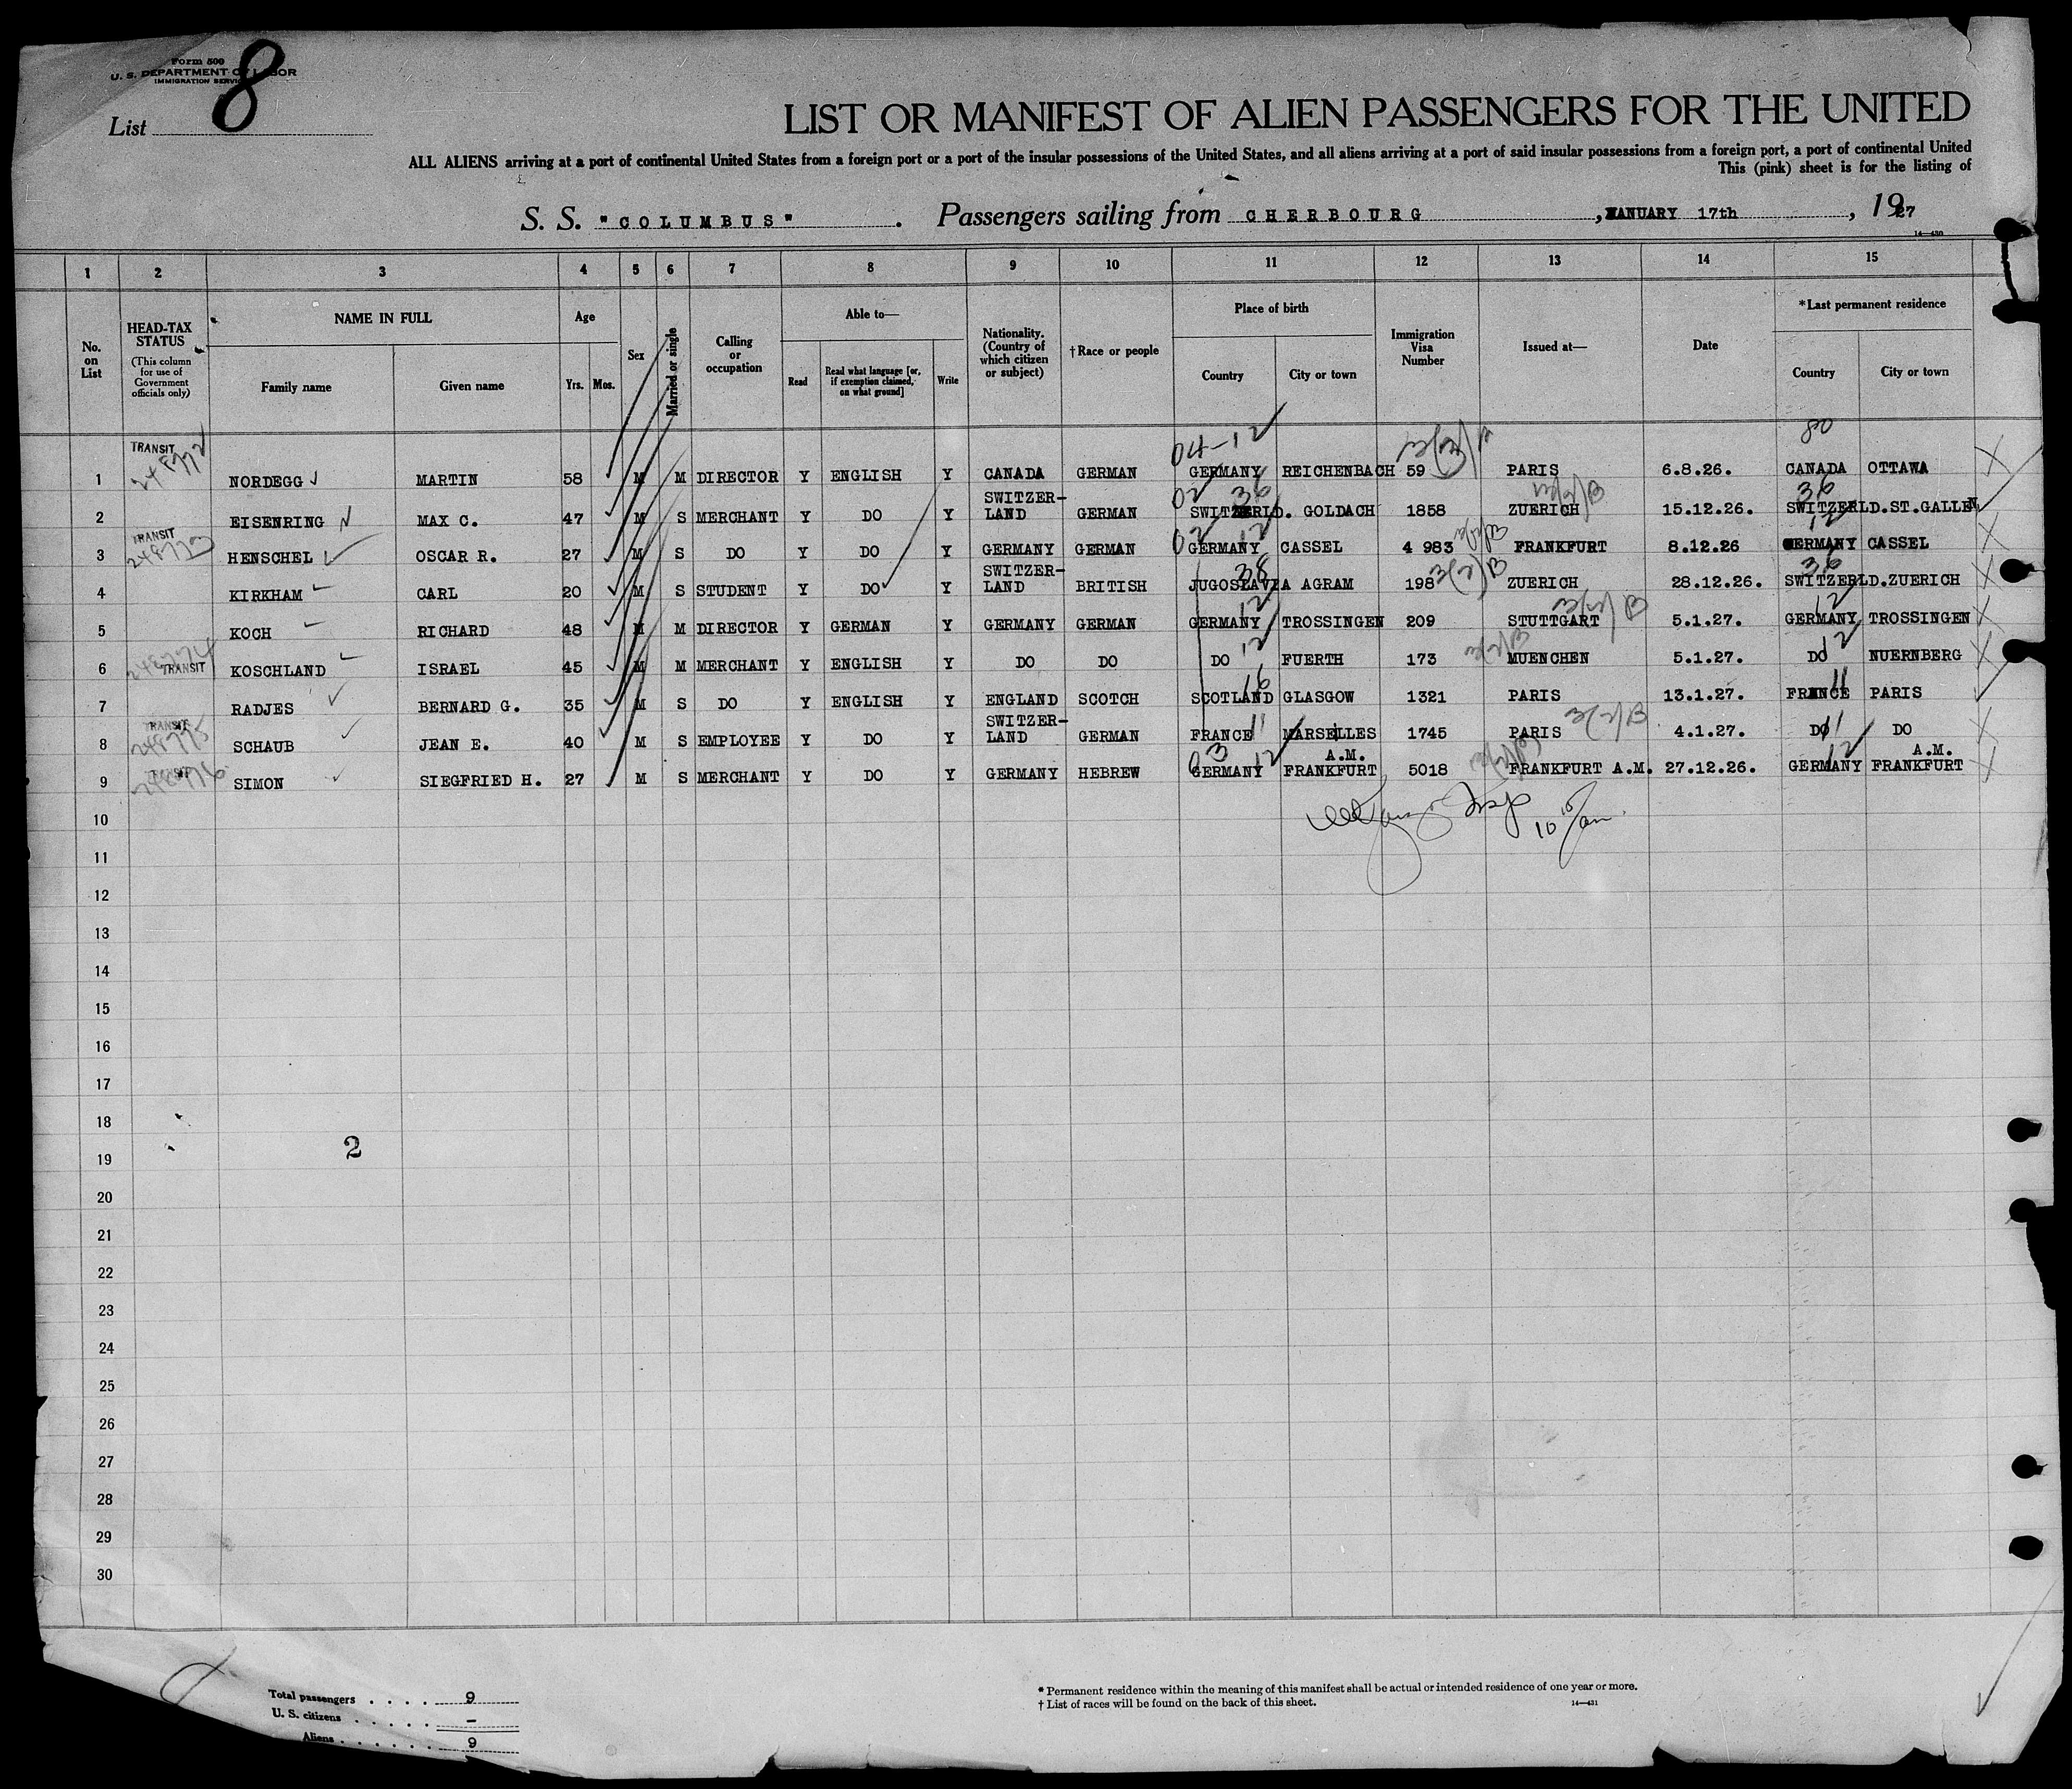 Form 500
U. S. DEPARTMENT OF LABOR
IMMIGRATION SERVICE
List 8
LIST OR MANIFEST OF ALIEN PASSENGERS FOR THE UNITED
ALL ALIENS arriving at a port of continental United States from a foreign port or a port of the insular possessions of the United States, and all aliens arriving at a port of said insular possessions from a foreign port, a port of continental United
This (pink) sheet is for the listing of
S. S. "COLUMBUS". Passengers sailing from CHERBOURG, JANUARY 17th, 1927
14—430
1 2 3 4 5 6 7 8 9 10 11 12 13 14 15
No. on List
HEAD-TAX STATUS (This column for use of Government officials only)
NAME IN FULL
Family name Given name
Age
Yrs. Mos.
Sex
Married or single
Calling or occupation
Able to—
Read
Read what language [or, if exemption claimed, on what ground]
Write
Nationality. (Country of which citizen or subject)
†Race or people
Place of birth
Country City or town
Immigration Visa Number
Issued at—
Date
*Last permanent residence
Country City or town
04-12 80
1 TRANSIT 248772 NORDEGG MARTIN 58 M M DIRECTOR Y ENGLISH Y CANADA GERMAN GERMANY REICHENBACH 59 PARIS 6.8.26. CANADA OTTAWA
02 36 36
2 EISENRING MAX C. 47 M S MERCHANT Y DO Y SWITZER-LAND GERMAN SWITZERLD. GOLDACH 1858 ZUERICH 15.12.26. SWITZERLD.ST.GALLEN
02 12 12
3 TRANSIT 248773 HENSCHEL OSCAR R. 27 M S DO Y DO Y GERMANY GERMAN GERMANY CASSEL 4 983 FRANKFURT 8.12.26 GERMANY CASSEL
38 36
4 KIRKHAM CARL 20 M S STUDENT Y DO Y SWITZER-LAND BRITISH JUGOSLAVIA AGRAM 198 ZUERICH 28.12.26. SWITZERLD.ZUERICH
12 12
5 KOCH RICHARD 48 M M DIRECTOR Y GERMAN Y GERMANY GERMAN GERMANY TROSSINGEN 209 STUTTGART 5.1.27. GERMANY TROSSINGEN
12 12
6 248774 TRANSIT KOSCHLAND ISRAEL 45 M M MERCHANT Y ENGLISH Y DO DO DO FUERTH 173 MUENCHEN 5.1.27. DO NUERNBERG
16 11
7 RADJES BERNARD G. 35 M S DO Y ENGLISH Y ENGLAND SCOTCH SCOTLAND GLASGOW 1321 PARIS 13.1.27. FRANCE PARIS
11 11
8 TRANSIT 248775 SCHAUB JEAN E. 40 M S EMPLOYEE Y DO Y SWITZER-LAND GERMAN FRANCE MARSELLES 1745 PARIS 4.1.27. DO DO
03 12 12
9 248776 SIMON SIEGFRIED H. 27 M S MERCHANT Y DO Y GERMANY HEBREW GERMANY FRANKFURT A.M. 5018 FRANKFURT A.M. 27.12.26. GERMANY FRANKFURT A.M.
10
11
12
13
14
15
16
17
18
2
19
20
21
22
23
24
25
26
27
28
29
30
Total passengers . . . . 9
U. S. citizens . . . . . –
Aliens . . . . . . 9
* Permanent residence within the meaning of this manifest shall be actual or intended residence of one year or more.
† List of races will be found on the back of this sheet.
14—431